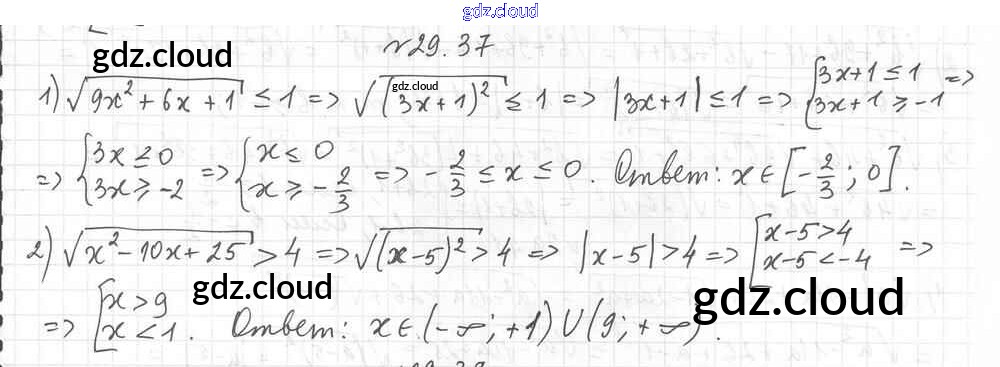 gdz.cloud
№29.37
gdz.cloud
gdz.cloud
1) √(9x² + 6x + 1) ≤ 1 => √((3x+1)²) ≤ 1 => |3x+1| ≤ 1 => { 3x+1 ≤ 1 ; 3x+1 ≥ -1 =>
=> { 3x ≤ 0 ; 3x ≥ -2 => { x ≤ 0 ; x ≥ -2/3 => -2/3 ≤ x ≤ 0. Ответ: x ∈ [-2/3 ; 0].
2) √(x² - 10x + 25) > 4 => √((x-5)²) > 4 => |x-5| > 4 => [ x-5 > 4 ; x-5 < -4 =>
gdz.cloud
gdz.cloud
=> [ x > 9 ; x < 1. Ответ: x ∈ (-∞; +1) ∪ (9; +∞).